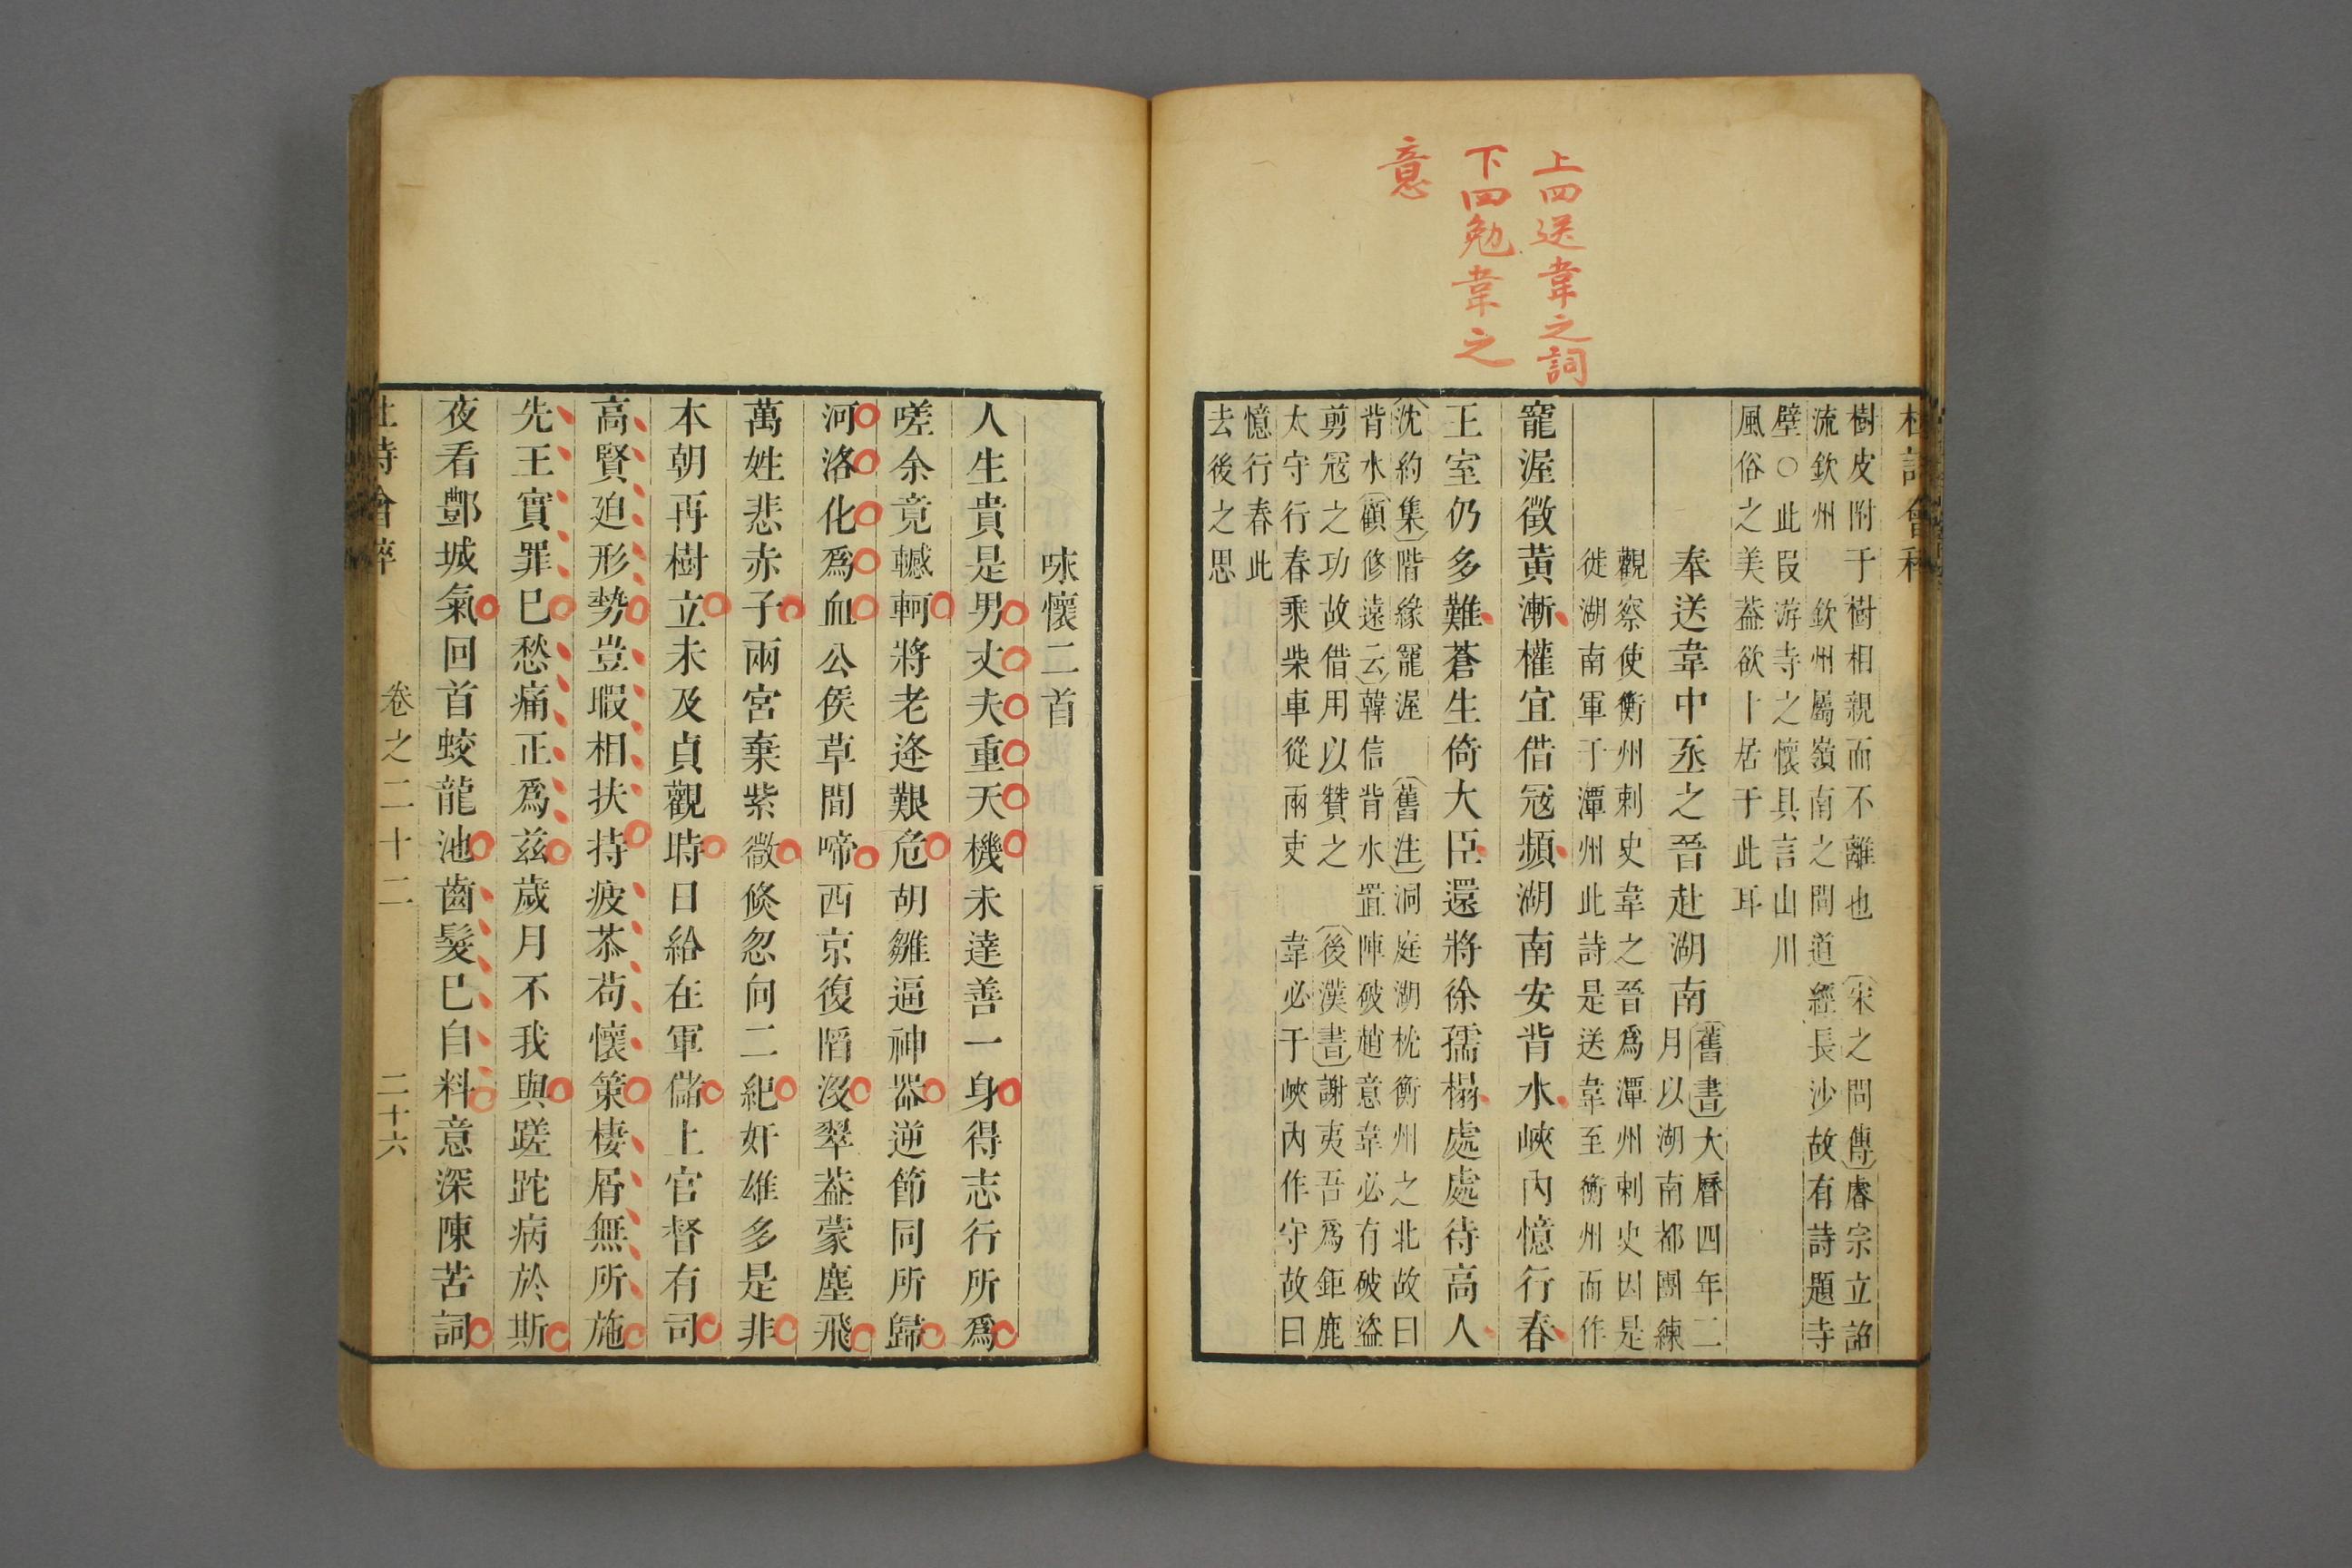 上四送韋之詞
下四勉韋之
意
樹皮附于樹相親而不離也〔宋之問傳〕睿宗立詔
流欽州 欽州屬嶺南之間道經長沙故有詩題寺
壁○此叚游寺之懷具言山川
風俗之美葢欲卜居于此耳
奉送韋中丞之晉赴湖南〔舊書〕大曆四年二
月以湖南都團練
觀察使衡州刺史韋之晉爲潭州刺史因是
徙湖南軍于潭州此詩是送韋至衡州而作
寵渥徵黃漸權宜借冦頻湖南安背水峽內憶行春
王室仍多難蒼生倚大臣還將徐孺榻處處待高人
〔沈約集〕階緣寵渥〔舊注〕洞庭湖枕衡州之北故曰
背水〔顧修遠云〕韓信背水置陣破趙意韋必有破盜
剪冦之功故借用以贊之〔後漢書〕謝夷吾爲鉅鹿
太守行春乘柴車從兩吏 韋必于峽內作守故曰
憶行春此
去後之思
咏懷二首
人生貴是男丈夫重天機未達善一身得志行所爲
嗟余竟轗軻將老逢艱危胡雛逼神器逆節同所歸
河洛化爲血公侯草間啼西京復䧟沒翠葢蒙塵飛
萬姓悲赤子兩宮棄紫微倐忽向二紀奸雄多是非
本朝再樹立未及貞觀時日給在軍儲上官督有司
高賢迫形勢豈暇相扶持疲苶苟懷策棲屑無所施
先王實罪已愁痛正爲茲歲月不我與蹉跎病於斯
夜看酆城氣回首蛟龍池齒髮已自料意深陳苦詞
卷之二十二
二十六